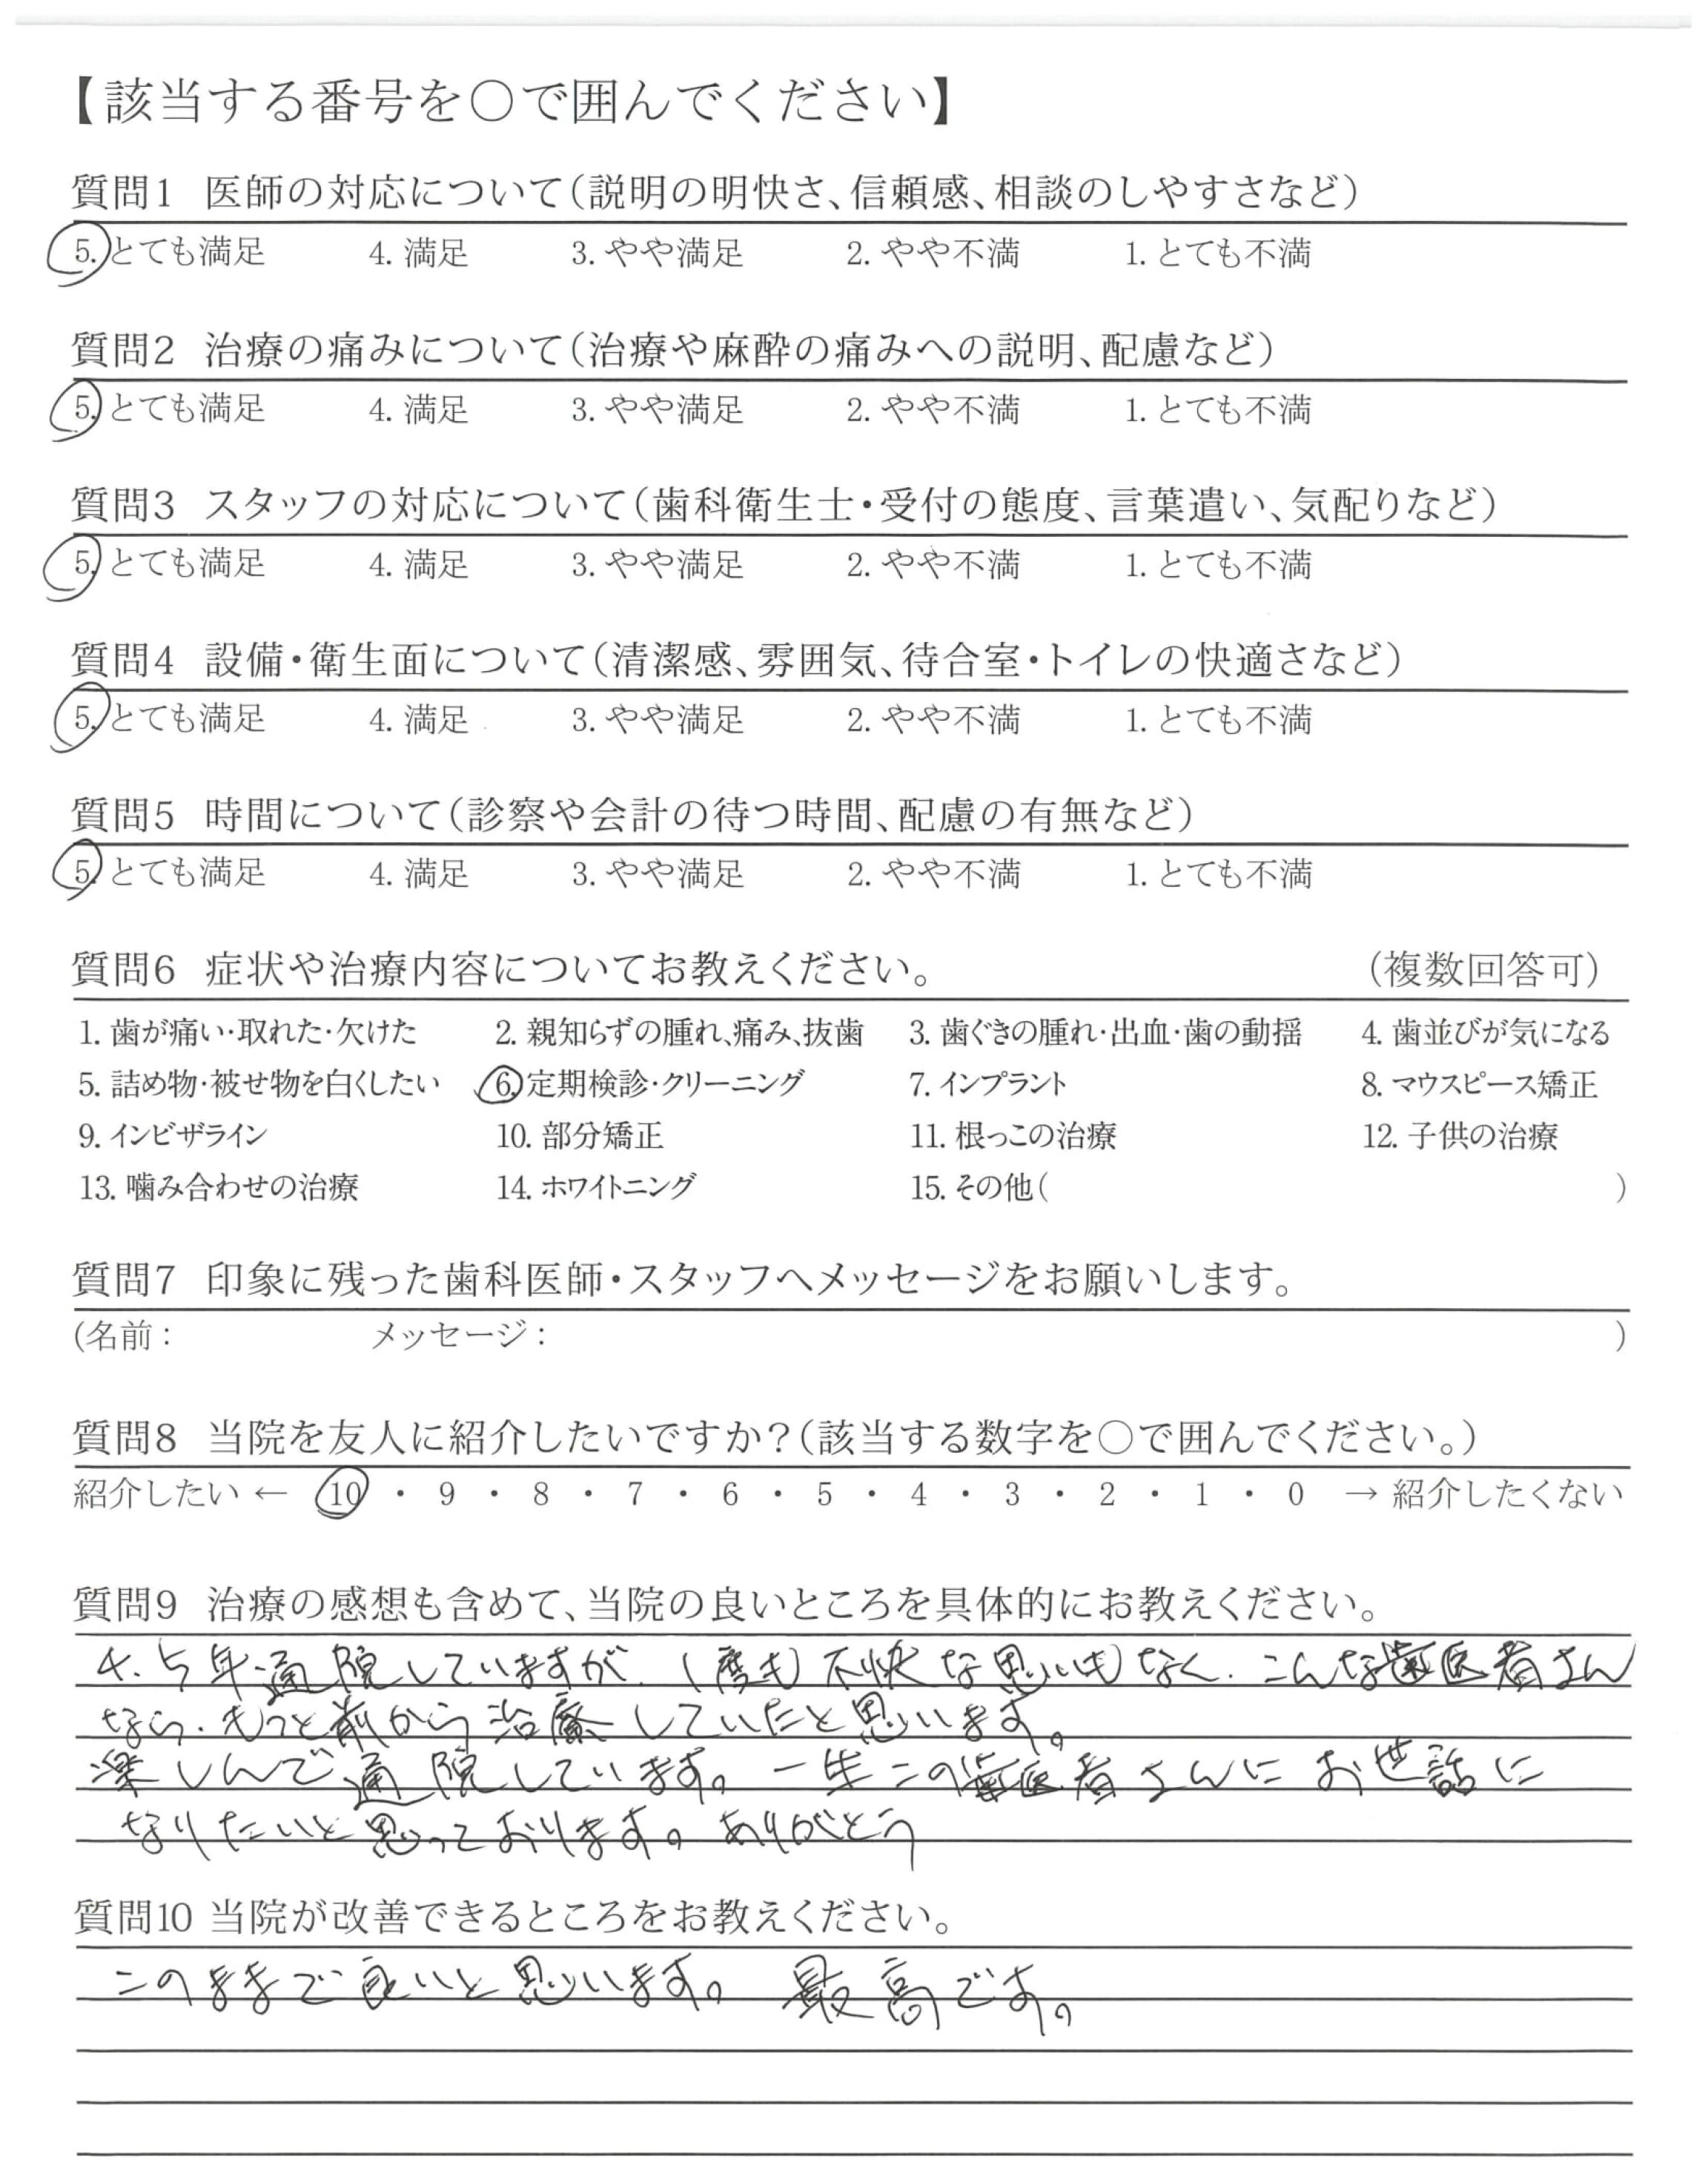 【該当する番号を○で囲んでください】
質問1 医師の対応について(説明の明快さ、信頼感、相談のしやすさなど)
5. とても満足 4. 満足 3. やや満足 2. やや不満 1. とても不満
質問2 治療の痛みについて(治療や麻酔の痛みへの説明、配慮など)
5. とても満足 4. 満足 3. やや満足 2. やや不満 1. とても不満
質問3 スタッフの対応について(歯科衛生士・受付の態度、言葉遣い、気配りなど)
5. とても満足 4. 満足 3. やや満足 2. やや不満 1. とても不満
質問4 設備・衛生面について(清潔感、雰囲気、待合室・トイレの快適さなど)
5. とても満足 4. 満足 3. やや満足 2. やや不満 1. とても不満
質問5 時間について(診察や会計の待つ時間、配慮の有無など)
5. とても満足 4. 満足 3. やや満足 2. やや不満 1. とても不満
質問6 症状や治療内容についてお教えください。 (複数回答可)
1. 歯が痛い・取れた・欠けた 2. 親知らずの腫れ、痛み、抜歯 3. 歯ぐきの腫れ・出血・歯の動揺 4. 歯並びが気になる
5. 詰め物・被せ物を白くしたい 6. 定期検診・クリーニング 7. インプラント 8. マウスピース矯正
9. インビザライン 10. 部分矯正 11. 根っこの治療 12. 子供の治療
13. 噛み合わせの治療 14. ホワイトニング 15. その他( )
質問7 印象に残った歯科医師・スタッフへメッセージをお願いします。
(名前: メッセージ: )
質問8 当院を友人に紹介したいですか?(該当する数字を○で囲んでください。)
紹介したい ← 10 ・ 9 ・ 8 ・ 7 ・ 6 ・ 5 ・ 4 ・ 3 ・ 2 ・ 1 ・ 0 → 紹介したくない
質問9 治療の感想も含めて、当院の良いところを具体的にお教えください。
4、5年通院していますが、1度も不快な思いもなく、こんな歯医者さん
なら、もっと前から治療していたと思います。
楽しんで通院しています。一生この歯医者さんにお世話に
なりたいと思っております。ありがとう
質問10 当院が改善できるところをお教えください。
このままで良いと思います。最高です。